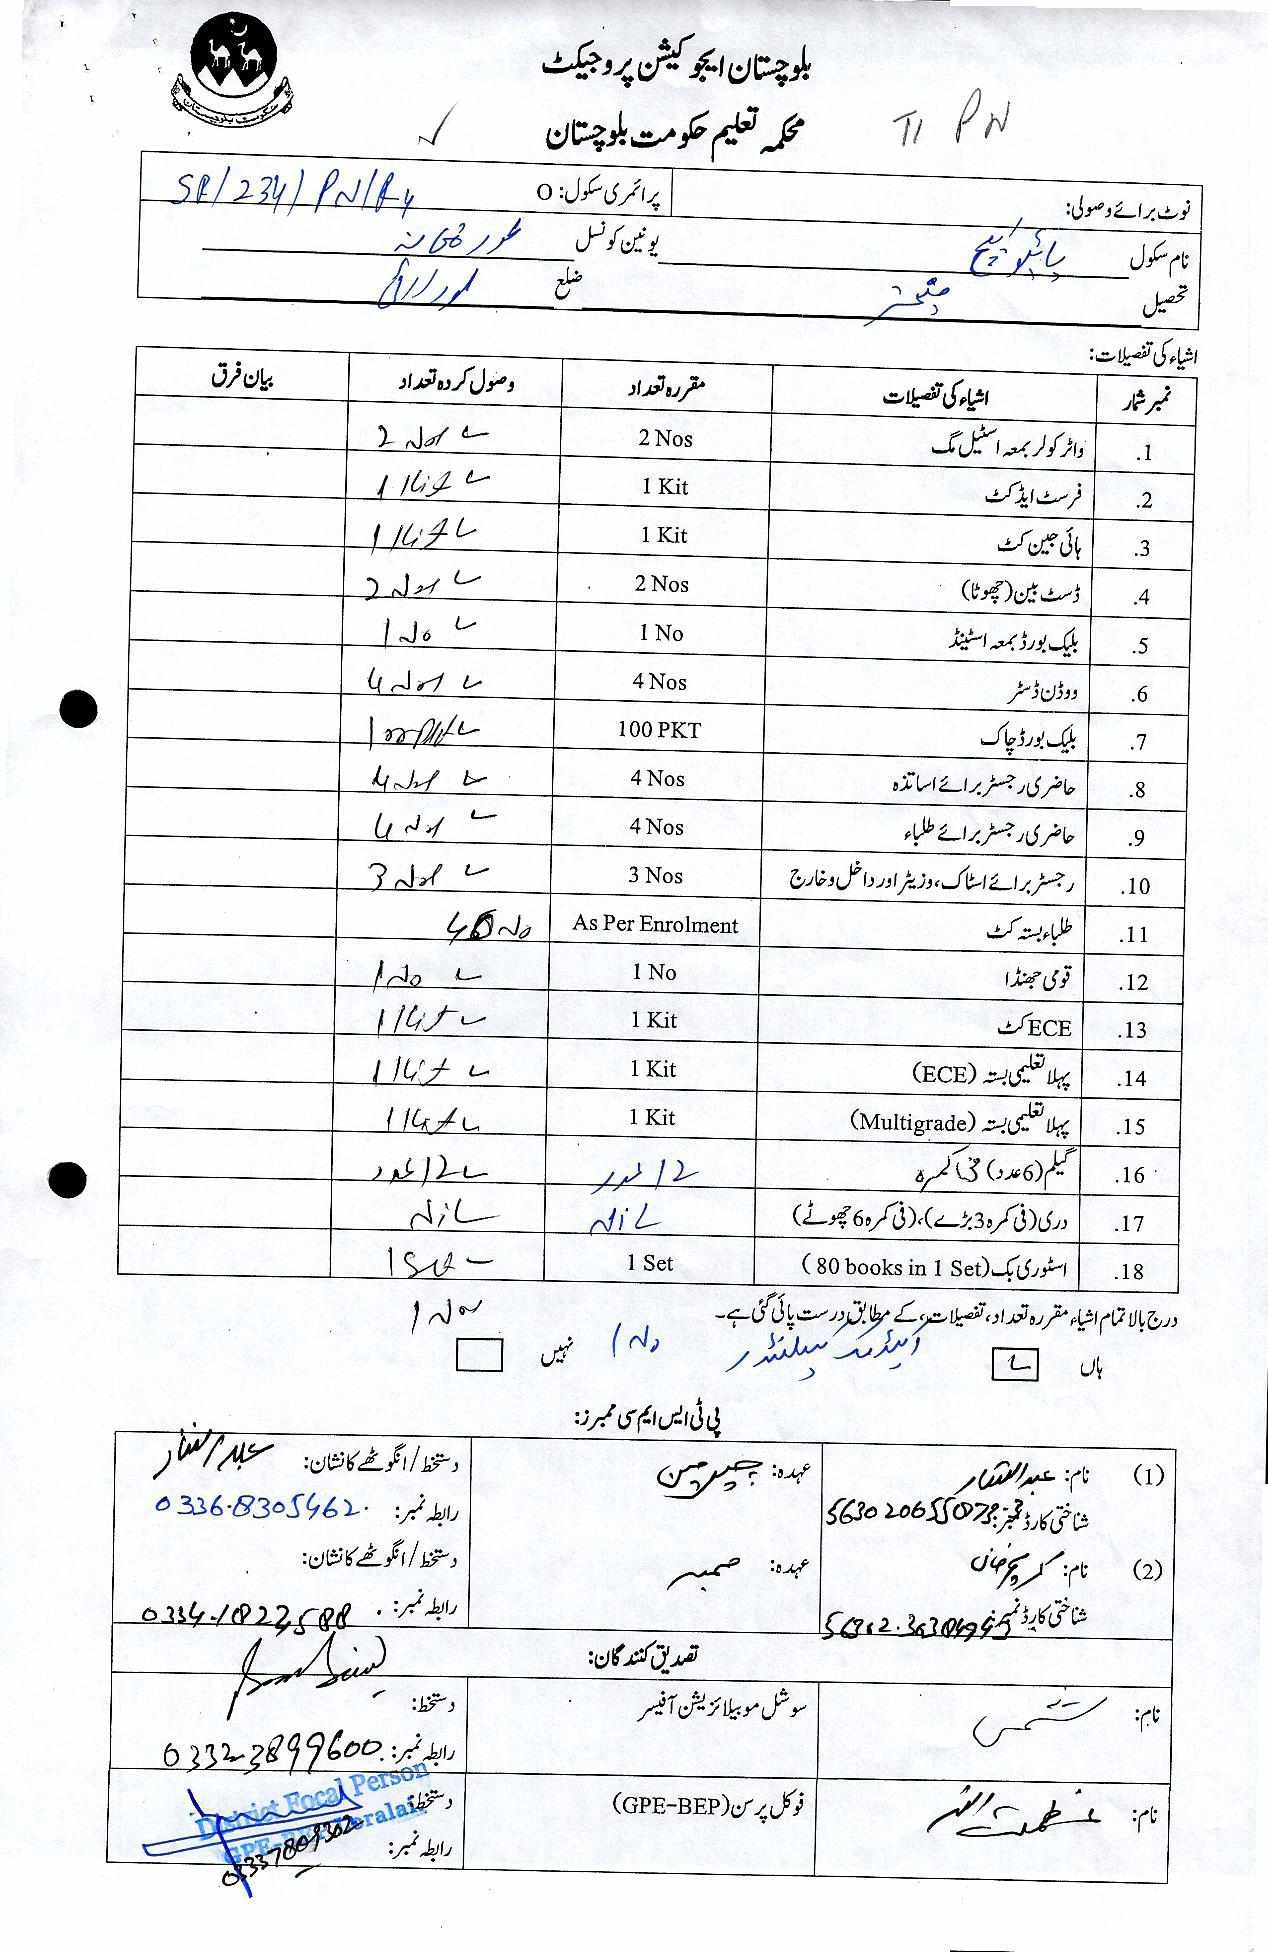 حکومت بلوچستان
بلوچستان ایجوکیشن پروجیکٹ
محکمہ تعلیم حکومت بلوچستان
TI PN
نوٹ برائے وصولی: پرائمری سکول: O
نام سکول یونین کونسل
تحصیل ضلع
اشیاء کی تفصیلات:
نمبر شمار اشیاء کی تفصیلات مقررہ تعداد وصول کردہ تعداد بیان فرق
1. واٹر کولر بمعہ اسٹیل مگ 2 Nos 2 Nos
2. فرسٹ ایڈ کٹ 1 Kit 1 Kit
3. ہائی جین کٹ 1 Kit 1 Kit
4. ڈسٹ بین (چھوٹا) 2 Nos 2 Nos
5. بلیک بورڈ بمعہ اسٹینڈ 1 No 1 No
6. ووڈن ڈسٹر 4 Nos 4 Nos
7. بلیک بورڈ چاک 100 PKT 100 PKT
8. حاضری رجسٹر برائے اساتذہ 4 Nos 4 Nos
9. حاضری رجسٹر برائے طلباء 4 Nos 4 Nos
10. رجسٹر برائے اسٹاک، وزیٹر اور داخل و خارج 3 Nos 3 Nos
11. طلباء بستہ کٹ As Per Enrolment No
12. قومی جھنڈا 1 No 1 No
13. ECE کٹ 1 Kit 1 Kit
14. پہلا تعلیمی بستہ (ECE) 1 Kit 1 Kit
15. پہلا تعلیمی بستہ (Multigrade) 1 Kit 1 Kit
16. گیلم (6 عدد) فی کمرہ 12 عدد 12 عدد
17. دری (فی کمرہ 3 بڑے)، (فی کمرہ 6 چھوٹے) Nil Nil
18. اسٹوری بک (80 books in 1 Set) 1 Set 1 Set
درج بالا تمام اشیاء مقررہ تعداد، تفصیلات، کے مطابق درست پائی گئی ہے۔ 1 No
ہاں 1 No نہیں
پی ٹی ایس ایم سی ممبرز:
(1) نام: عبدالستار عہدہ: چیرمین دستخط/انگوٹھے کا نشان: عبدالستار
شناختی کارڈ نمبر: رابطہ نمبر: 0336-8305462
(2) نام: عہدہ: ممبر دستخط/انگوٹھے کا نشان:
شناختی کارڈ نمبر: رابطہ نمبر:
تصدیق کنندگان:
نام: شمس سوشل موبیلائزیشن آفیسر دستخط:
رابطہ نمبر: 0332-3899600
نام: عظمت اللہ فوکل پرسن (GPE-BEP) دستخط:
رابطہ نمبر: 03337809302
District Focal Person